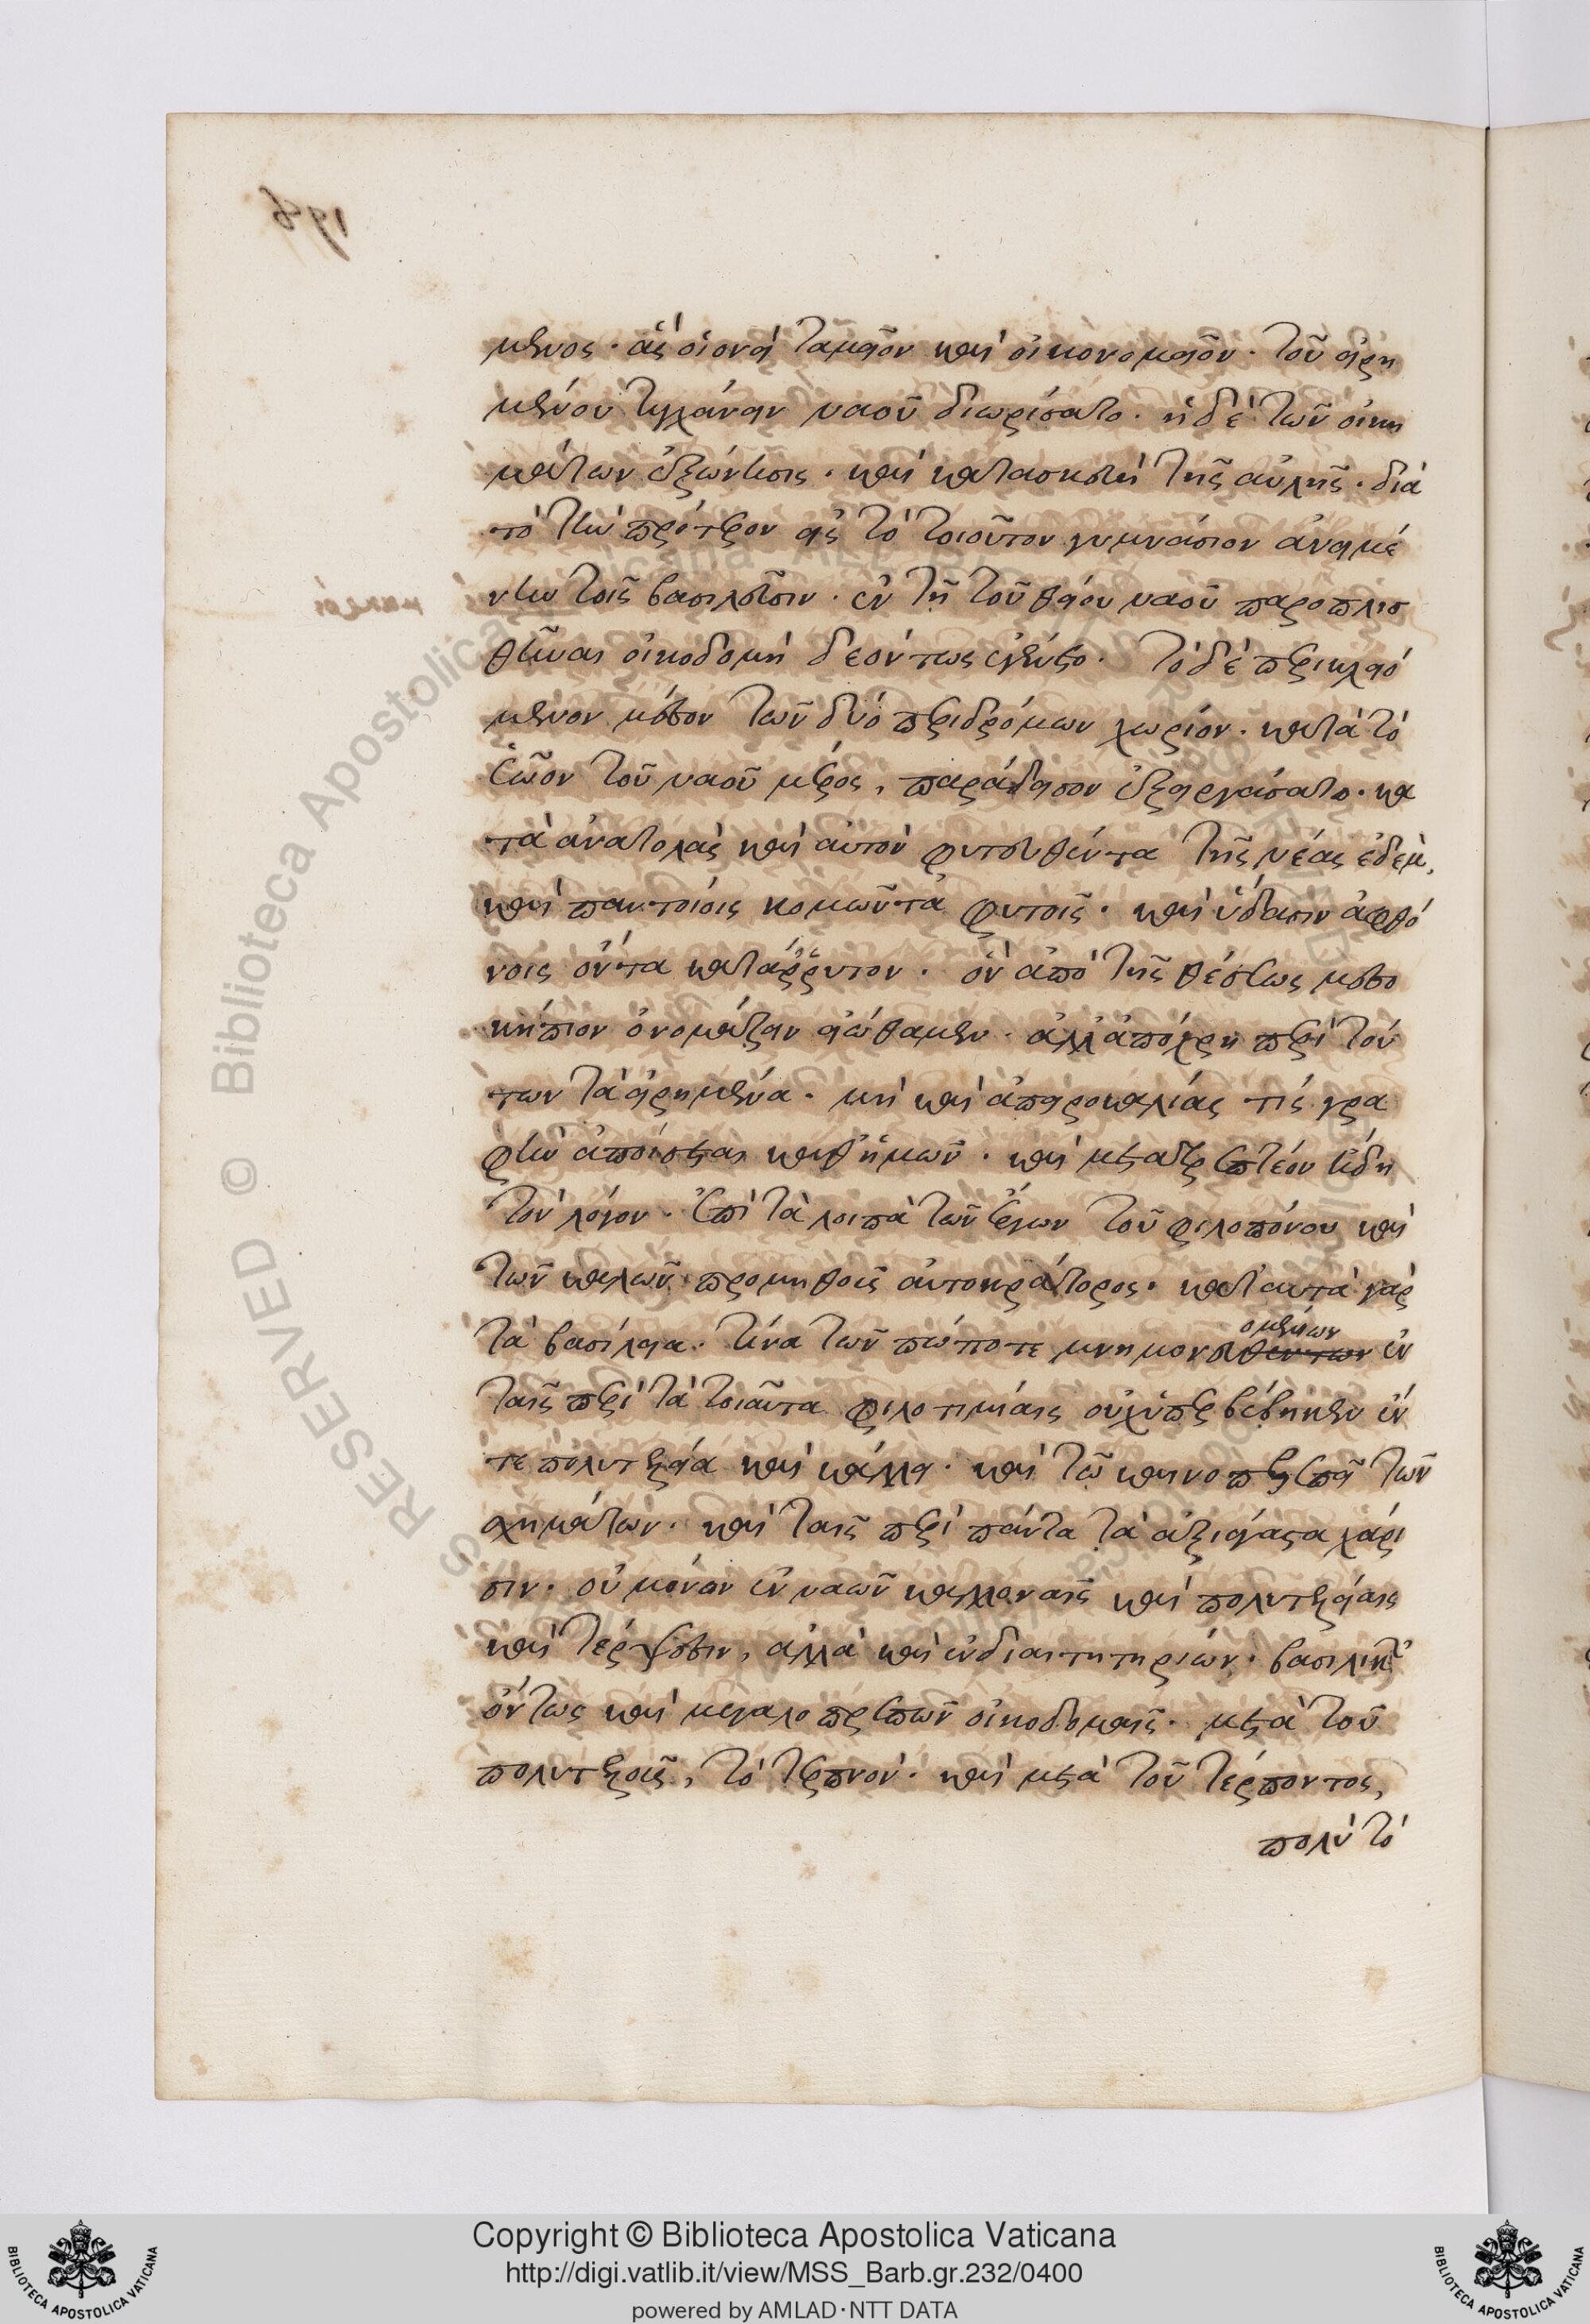 μενος· ἃς οἱονεὶ ταμεῖον καὶ οἰκονομεῖον· τοῦ εἰρη
μένου τυγχάνειν ναοῦ διωρίσατο· ἡ δὲ τῶν οἰκη
μάτων ἐξώνησις· καὶ κατασκευὴ τῆς αὐλῆς· διὰ
τὸ τὴν πρότερον εἰς τὸ τοιοῦτον γυμνάσιον ἀνειμέ
νην τοῖς βασιλεῦσιν· ἐν τῇ τοῦ θείου ναοῦ
θῆναι οἰκοδομῇ δεόντως ἐγένετο· τὸ δὲ περικλειό
μενον μέσον τῶν δύο περιδρόμων χωρίον· κατὰ τὸ
ἑῷον τοῦ ναοῦ μέρος, παράδεισον ἐξειργάσατο· κα
τὰ ἀνατολὰς καὶ αὐτὸν φυτευθέντα τῆς νέας ἐδὲμ,
καὶ παντοίοις κομῶντα φυτοῖς· καὶ ὕδασιν ἀφθό
νοις ὄντα κατάῤῥυτον· ὃν ἀπὸ τῆς θέσεως μεσο
κήπιον ὀνομάζειν εἰώθαμεν· ἀλλ' ἀπόχρη περὶ τού
των τὰ εἰρημένα· μὴ καὶ ἀπειροκαλίας τὶς γρα
φὴν ἀποίσεται καθ' ἡμῶν· καὶ μετατρεπτέον ἤδη
τὸν λόγον· ἐπὶ τὰ λοιπὰ τῶν ἔργων τοῦ φιλοπόνου καὶ
τῶν καλῶν προμηθοῦς αὐτοκράτορος· κατ' αὐτὰ γὰρ
τὰ βασίλεια· τίνα τῶν πώποτε μνημονευθέντων ἐν
ομένων
ταῖς περὶ τὰ τοιαῦτα φιλοτιμίαις οὐχ ὑπερβέβηκεν ἔν
τε πολυτελεία καὶ κάλλει· καὶ τῷ καινοπρεπεῖ τῶν
σχημάτων· καὶ ταῖς περὶ πάντα τὰ ἀξιάγαστα χάρι
σιν· οὐ μόνον ἐν ναῶν καλλοναῖς καὶ πολυτελείαις
καὶ τέρψεσιν, ἀλλὰ καὶ ἐνδιαιτητηρίων· βασιλικῶν
ὄντως καὶ μεγαλοπρεπῶν οἰκοδομαῖς· μετὰ τοῦ
πολυτελοῦς, τὸ τερπνόν· καὶ μετὰ τοῦ τέρποντος,
πολὺ τὸ
Copyright © Biblioteca Apostolica Vaticana
http://digi.vatlib.it/view/MSS_Barb.gr.232/0400
powered by AMLAD·NTT DATA